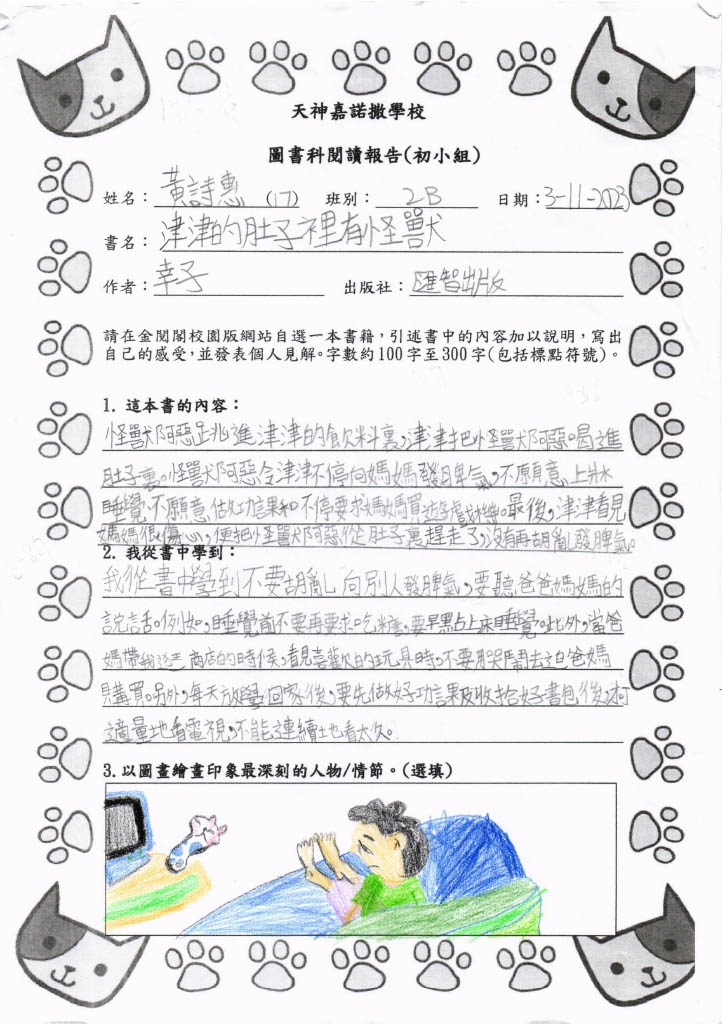 天神嘉諾撒學校
圖書科閱讀報告(初小組)
姓名：黃詩惠 (17) 班別：2B 日期：3-11-2023
書名：津津的肚子裡有怪獸
作者：幸子 出版社：匯智出版
請在金閱閣校園版網站自選一本書籍，引述書中的內容加以說明，寫出
自己的感受，並發表個人見解。字數約100字至300字(包括標點符號)。
1. 這本書的內容：
怪獸阿惡跳進津津的飲料裏，津津把怪獸阿惡喝進
肚子裏。怪獸阿惡令津津不停向媽媽發脾氣，不願意上牀
睡覺，不願意做功課和不停要求媽媽買遊戲機。最後，津津看見
媽媽很傷心，便把怪獸阿惡從肚子裏趕走了，沒有再胡亂發脾氣。
2. 我從書中學到：
我從書中學到不要胡亂向別人發脾氣，要聽爸爸媽媽的
說話。例如，睡覺前不要再要求吃糖，要早點上床睡覺。此外，當爸
媽帶我逛商店的時候，看見喜歡的玩具時，不要哭鬧去迫爸媽
購買。另外，每天放學回家後，要先做好功課及收拾好書包後，才可
適量地看電視，不能連續地看太久。
3. 以圖畫繪畫印象最深刻的人物/情節。(選填)